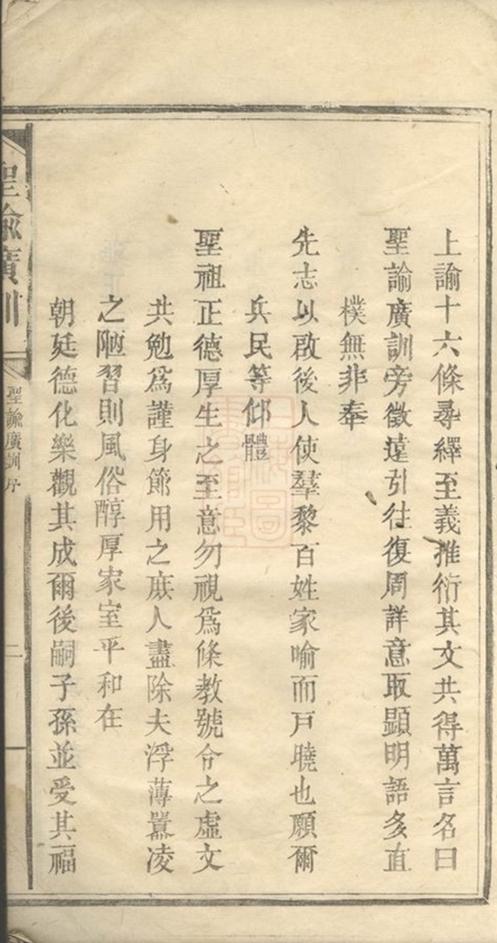 上諭十六條尋繹至義推衍其文共得萬言名曰
聖諭廣訓旁徵遠引往復周詳意取顯明語多直
樸無非奉
先志以啟後人使羣黎百姓家喻而戸曉也願爾
兵民等仰體
聖祖正德厚生之至意勿視爲條教號令之虛文
共勉爲謹身節用之庶人盡除夫浮薄囂凌
之陋習則風俗醇厚家室平和在
朝廷德化樂觀其成爾後嗣子孫並受其福
聖諭廣訓
聖諭廣訓序
二